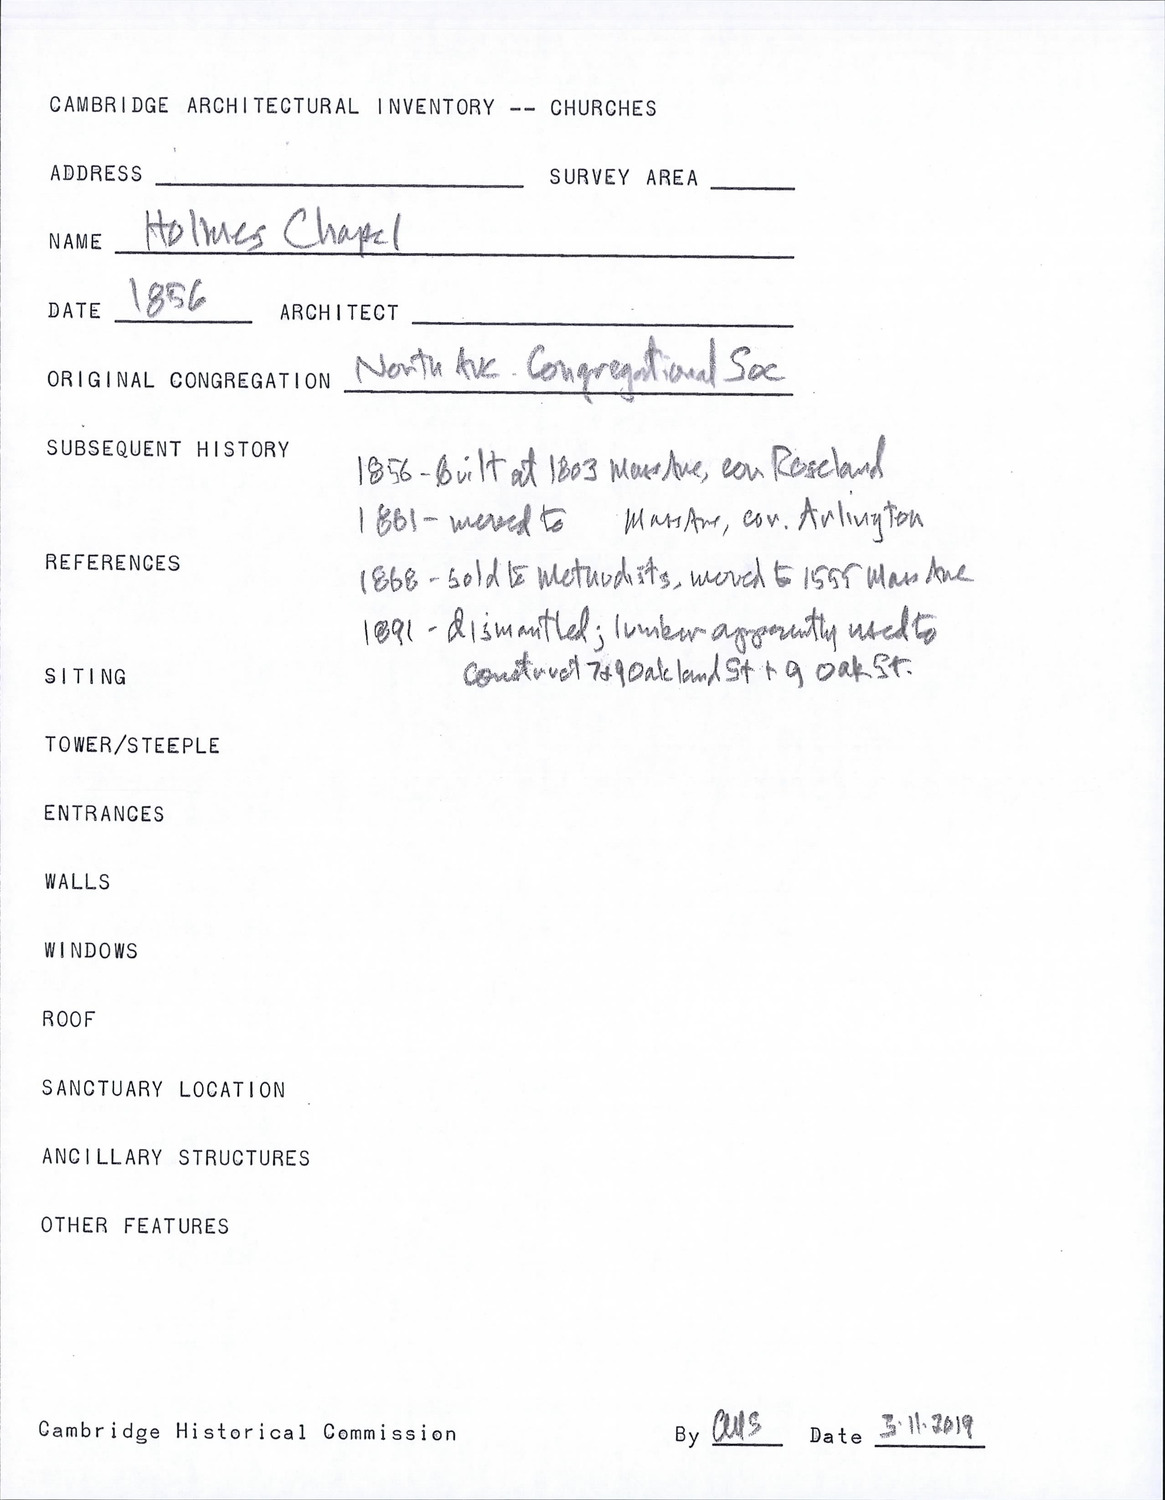 CAMBRIDGE ARCHITECTURAL INVENTORY -- CHURCHES
ADDRESS SURVEY AREA
NAME Holmes Chapel
DATE 1856 ARCHITECT
ORIGINAL CONGREGATION North Ave. Congregational Soc
SUBSEQUENT HISTORY
1856 - Built at 1803 Mass Ave, cor Roseland
1861 - moved to Mass Ave, cor. Arlington
REFERENCES
1868 - sold to Methodists, moved to 1555 Mass Ave
1891 - dismantled; lumber apparently used to
construct 7+9 Oakland St + 9 Oak St.
SITING
TOWER/STEEPLE
ENTRANCES
WALLS
WINDOWS
ROOF
SANCTUARY LOCATION
ANCILLARY STRUCTURES
OTHER FEATURES
Cambridge Historical Commission By CMS Date 3.11.2019